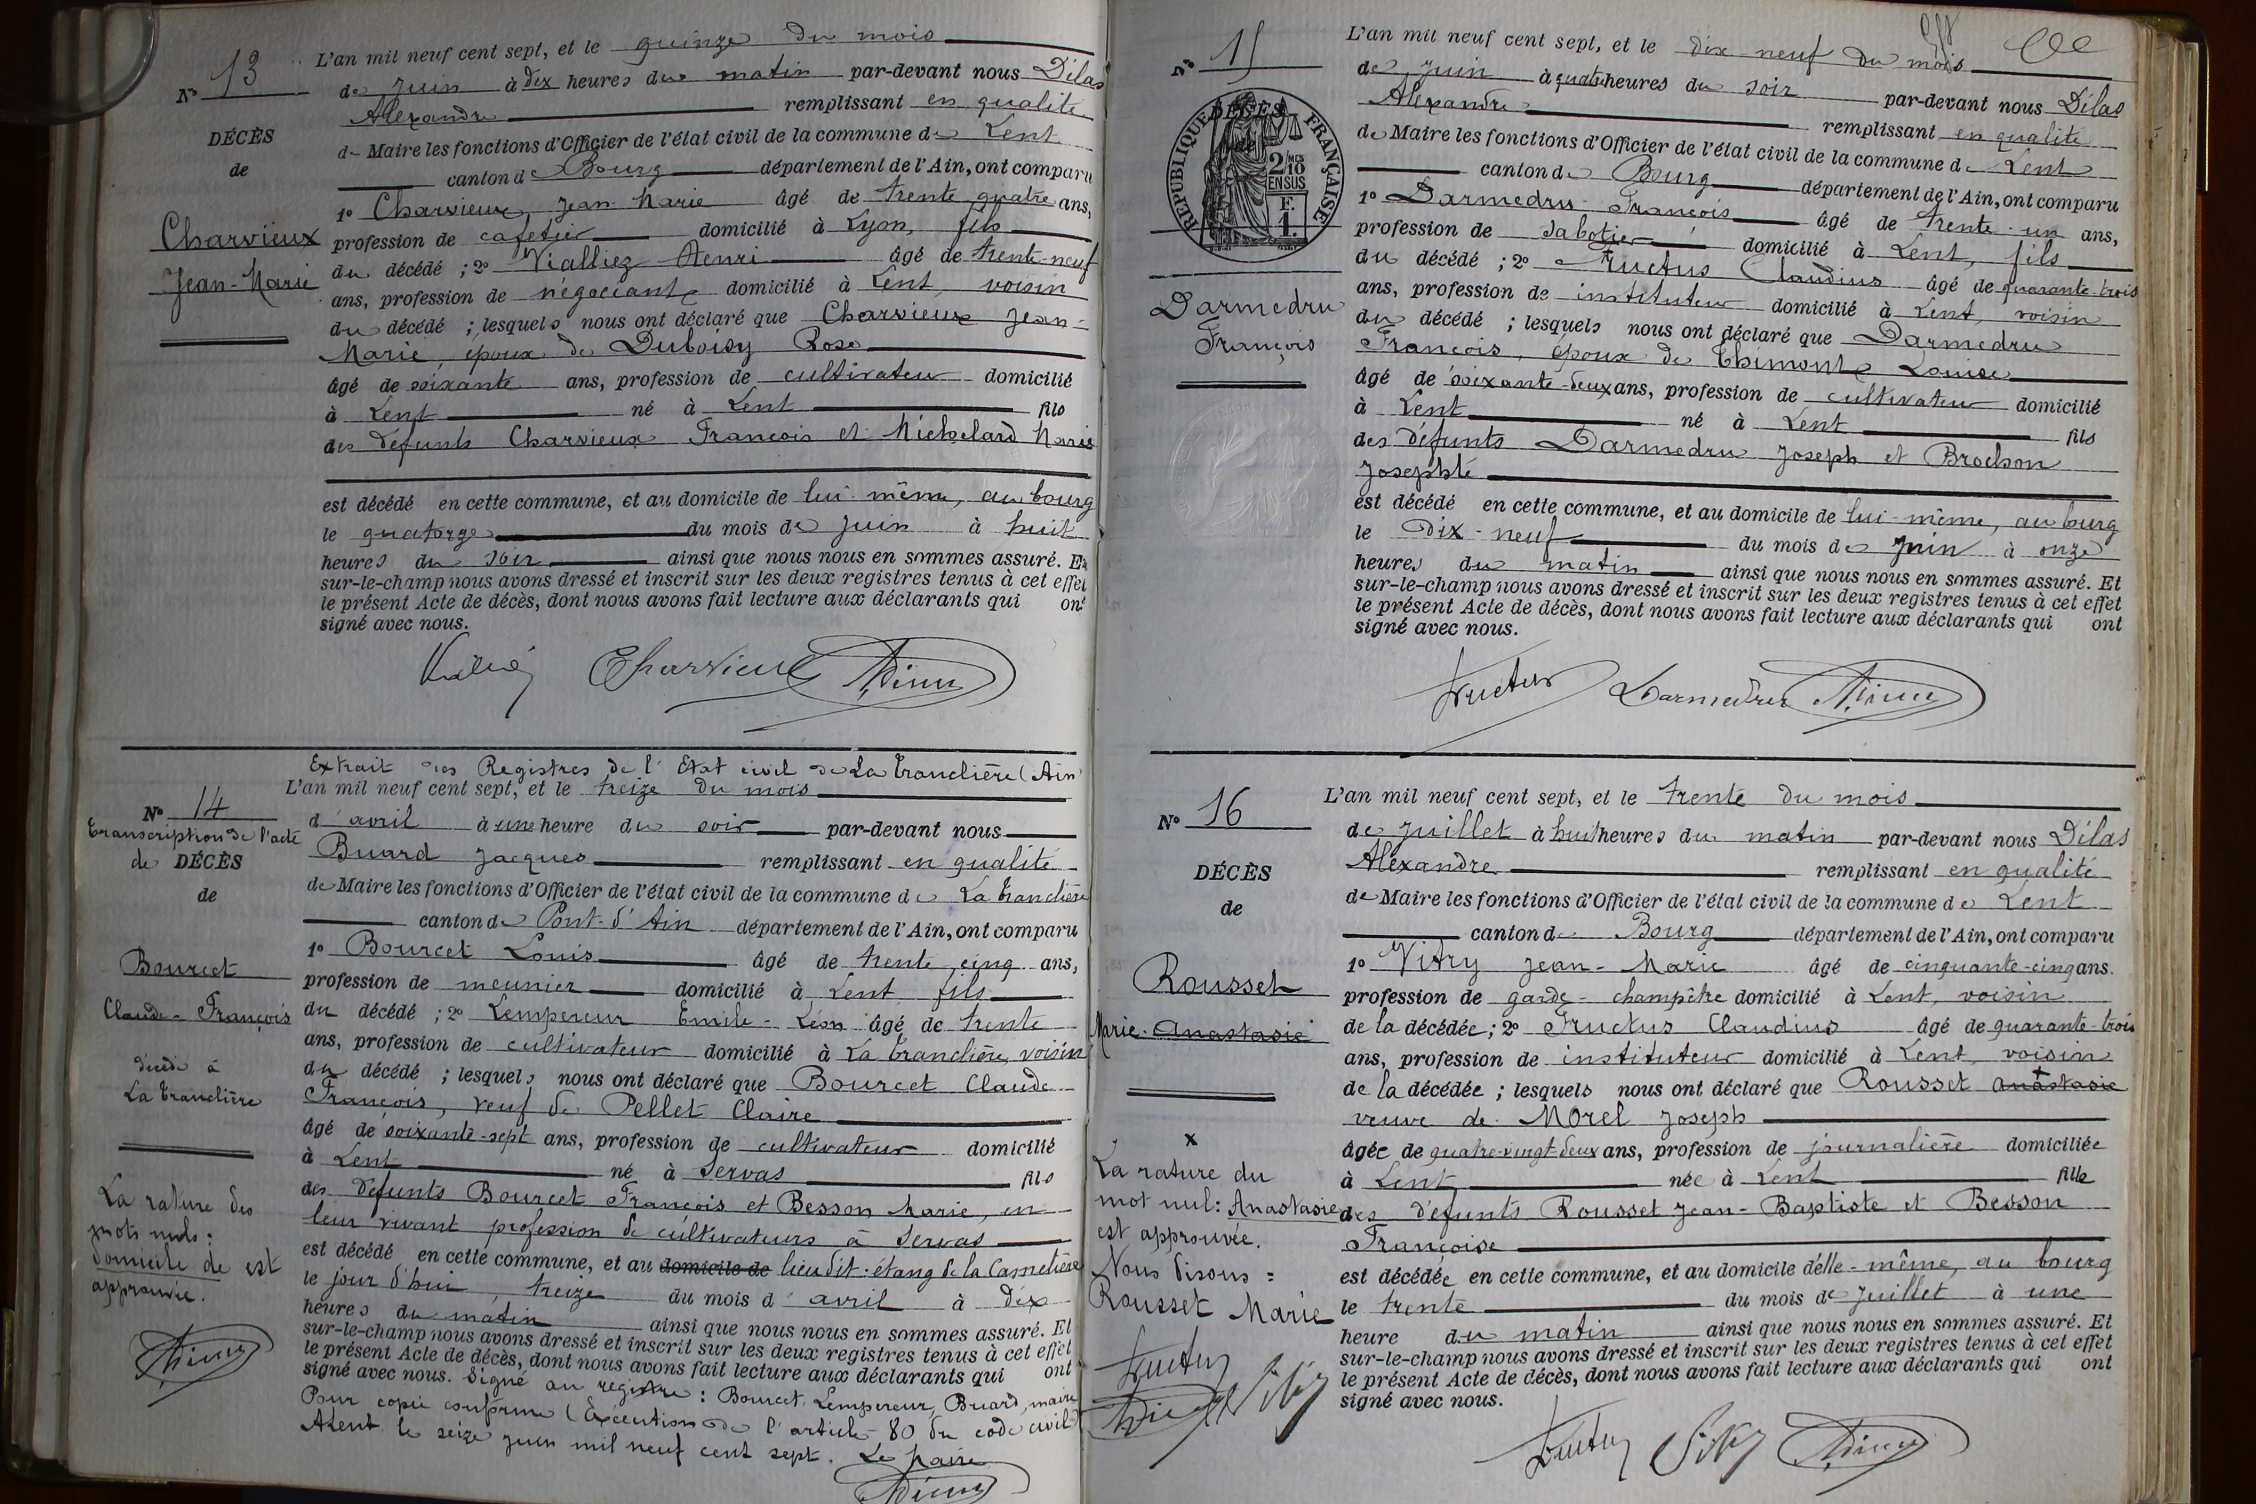 Nº 13
DÉCÈS
de
Charvieux
Jean-Marie
L'an mil neuf cent sept, et le quinze du mois
de Juin à dix heures du matin par-devant nous Délas
Alexandre remplissant en qualité
de Maire les fonctions d'Officier de l'état civil de la commune de Lent
canton de Bourg département de l'Ain, ont comparu
1º Charvieux Jean-Marie âgé de trente quatre ans,
profession de cafetier domicilié à Lyon, fils
du décédé ; 2º Vialliez Henri âgé de trente-neuf
ans, profession de négociant domicilié à Lent, voisin
du décédé ; lesquels nous ont déclaré que Charvieux Jean-
Marie, époux de Duboisy Rose
âgé de soixante ans, profession de cultivateur domicilié
à Lent né à Lent fils
des défunts Charvieux François et Michelard Marie
est décédé en cette commune, et au domicile de lui-même, au bourg
le quatorze du mois de Juin à huit
heures du soir ainsi que nous nous en sommes assuré. Et
sur-le-champ nous avons dressé et inscrit sur les deux registres tenus à cet effet
le présent Acte de décès, dont nous avons fait lecture aux déclarants qui ont
signé avec nous.
Charvieux
Nº 14
Transcription de l'acte
de DÉCÈS
de
Bourcet
Claude-François
décédé à
La Tranclière
La rature des
mots nuls :
domicile de est
approuvée.
Extrait des Registres de l'Etat civil de La Tranclière (Ain)
L'an mil neuf cent sept, et le treize du mois
d'avril à une heure du soir par-devant nous
Buard Jacques remplissant en qualité
de Maire les fonctions d'Officier de l'état civil de la commune de La Tranclière
canton de Pont-d'Ain département de l'Ain, ont comparu
1º Bourcet Louis âgé de trente cinq ans,
profession de meunier domicilié à Lent fils
du décédé ; 2º Lempereur Emile-Léon âgé de trente
ans, profession de cultivateur domicilié à La Tranclière, voisin
du décédé ; lesquels nous ont déclaré que Bourcet Claude
François, veuf de Pellet Claire
âgé de soixante-sept ans, profession de cultivateur domicilié
à Lent né à Servas fils
des défunts Bourcet François et Besson Marie, en
leur vivant profession de cultivateurs à Servas
est décédé en cette commune, et au domicile de lieu dit : étang de la
le jour d'hui, treize du mois d'avril à dix
heures du matin ainsi que nous nous en sommes assuré. Et
sur-le-champ nous avons dressé et inscrit sur les deux registres tenus à cet effet
le présent Acte de décès, dont nous avons fait lecture aux déclarants qui ont
signé avec nous. Signé au registre : Bourcet, Lempereur, Buard, maire
Pour copie conforme (Exécution de l'article 80 du code civil)
A Lent le seize juin mil neuf cent sept. Le Maire
Nº 15
DÉCÈS
de
RÉPUBLIQUE FRANÇAISE
2/10
MES
EN SUS
F.
1.
Darmedru
François
L'an mil neuf cent sept, et le dix-neuf du mois
de Juin à quatre heures du soir par-devant nous Délas
Alexandre remplissant en qualité
de Maire les fonctions d'Officier de l'état civil de la commune de Lent
canton de Bourg département de l'Ain, ont comparu
1º Darmedru François âgé de trente-un ans,
profession de sabotier domicilié à Lent, fils
du décédé ; 2º Fructus Claudius âgé de quarante-trois
ans, profession de instituteur domicilié à Lent, voisin
du décédé ; lesquels nous ont déclaré que Darmedru
François, époux de Thimont Louise
âgé de soixante-deux ans, profession de cultivateur domicilié
à Lent né à Lent fils
des défunts Darmedru Joseph et Brochon
Josephte
est décédé en cette commune, et au domicile de lui-même, au bourg
le dix-neuf du mois de Juin à onze
heures du matin ainsi que nous nous en sommes assuré. Et
sur-le-champ nous avons dressé et inscrit sur les deux registres tenus à cet effet
le présent Acte de décès, dont nous avons fait lecture aux déclarants qui ont
signé avec nous.
Fructus Darmedru
Nº 16
DÉCÈS
de
Rousset
Marie-Anastasie
x
La rature du
mot nul : Anastasie
est approuvée.
Nous disons =
Rousset Marie
Fructus Vitry
L'an mil neuf cent sept, et le trente du mois
de Juillet à huit heures du matin par-devant nous Délas
Alexandre remplissant en qualité
de Maire les fonctions d'Officier de l'état civil de la commune de Lent
canton de Bourg département de l'Ain, ont comparu
1º Vitry Jean-Marie âgé de cinquante-cinq ans.
profession de garde-champêtre domicilié à Lent, voisin
de la décédée ; 2º Fructus Claudius âgé de quarante-trois
ans, profession de instituteur domicilié à Lent, voisin
de la décédée ; lesquels nous ont déclaré que Rousset Anastasie x
veuve de Morel Joseph
âgée de quatre-vingt-deux ans, profession de journalière domiciliée
à Lent née à Lent fille
des défunts Rousset Jean-Baptiste et Besson
Françoise
est décédée en cette commune, et au domicile d'elle-même, au bourg
le trente du mois de Juillet à une
heure du matin ainsi que nous nous en sommes assuré. Et
sur-le-champ nous avons dressé et inscrit sur les deux registres tenus à cet effet
le présent Acte de décès, dont nous avons fait lecture aux déclarants qui ont
signé avec nous.
Fructus Vitry